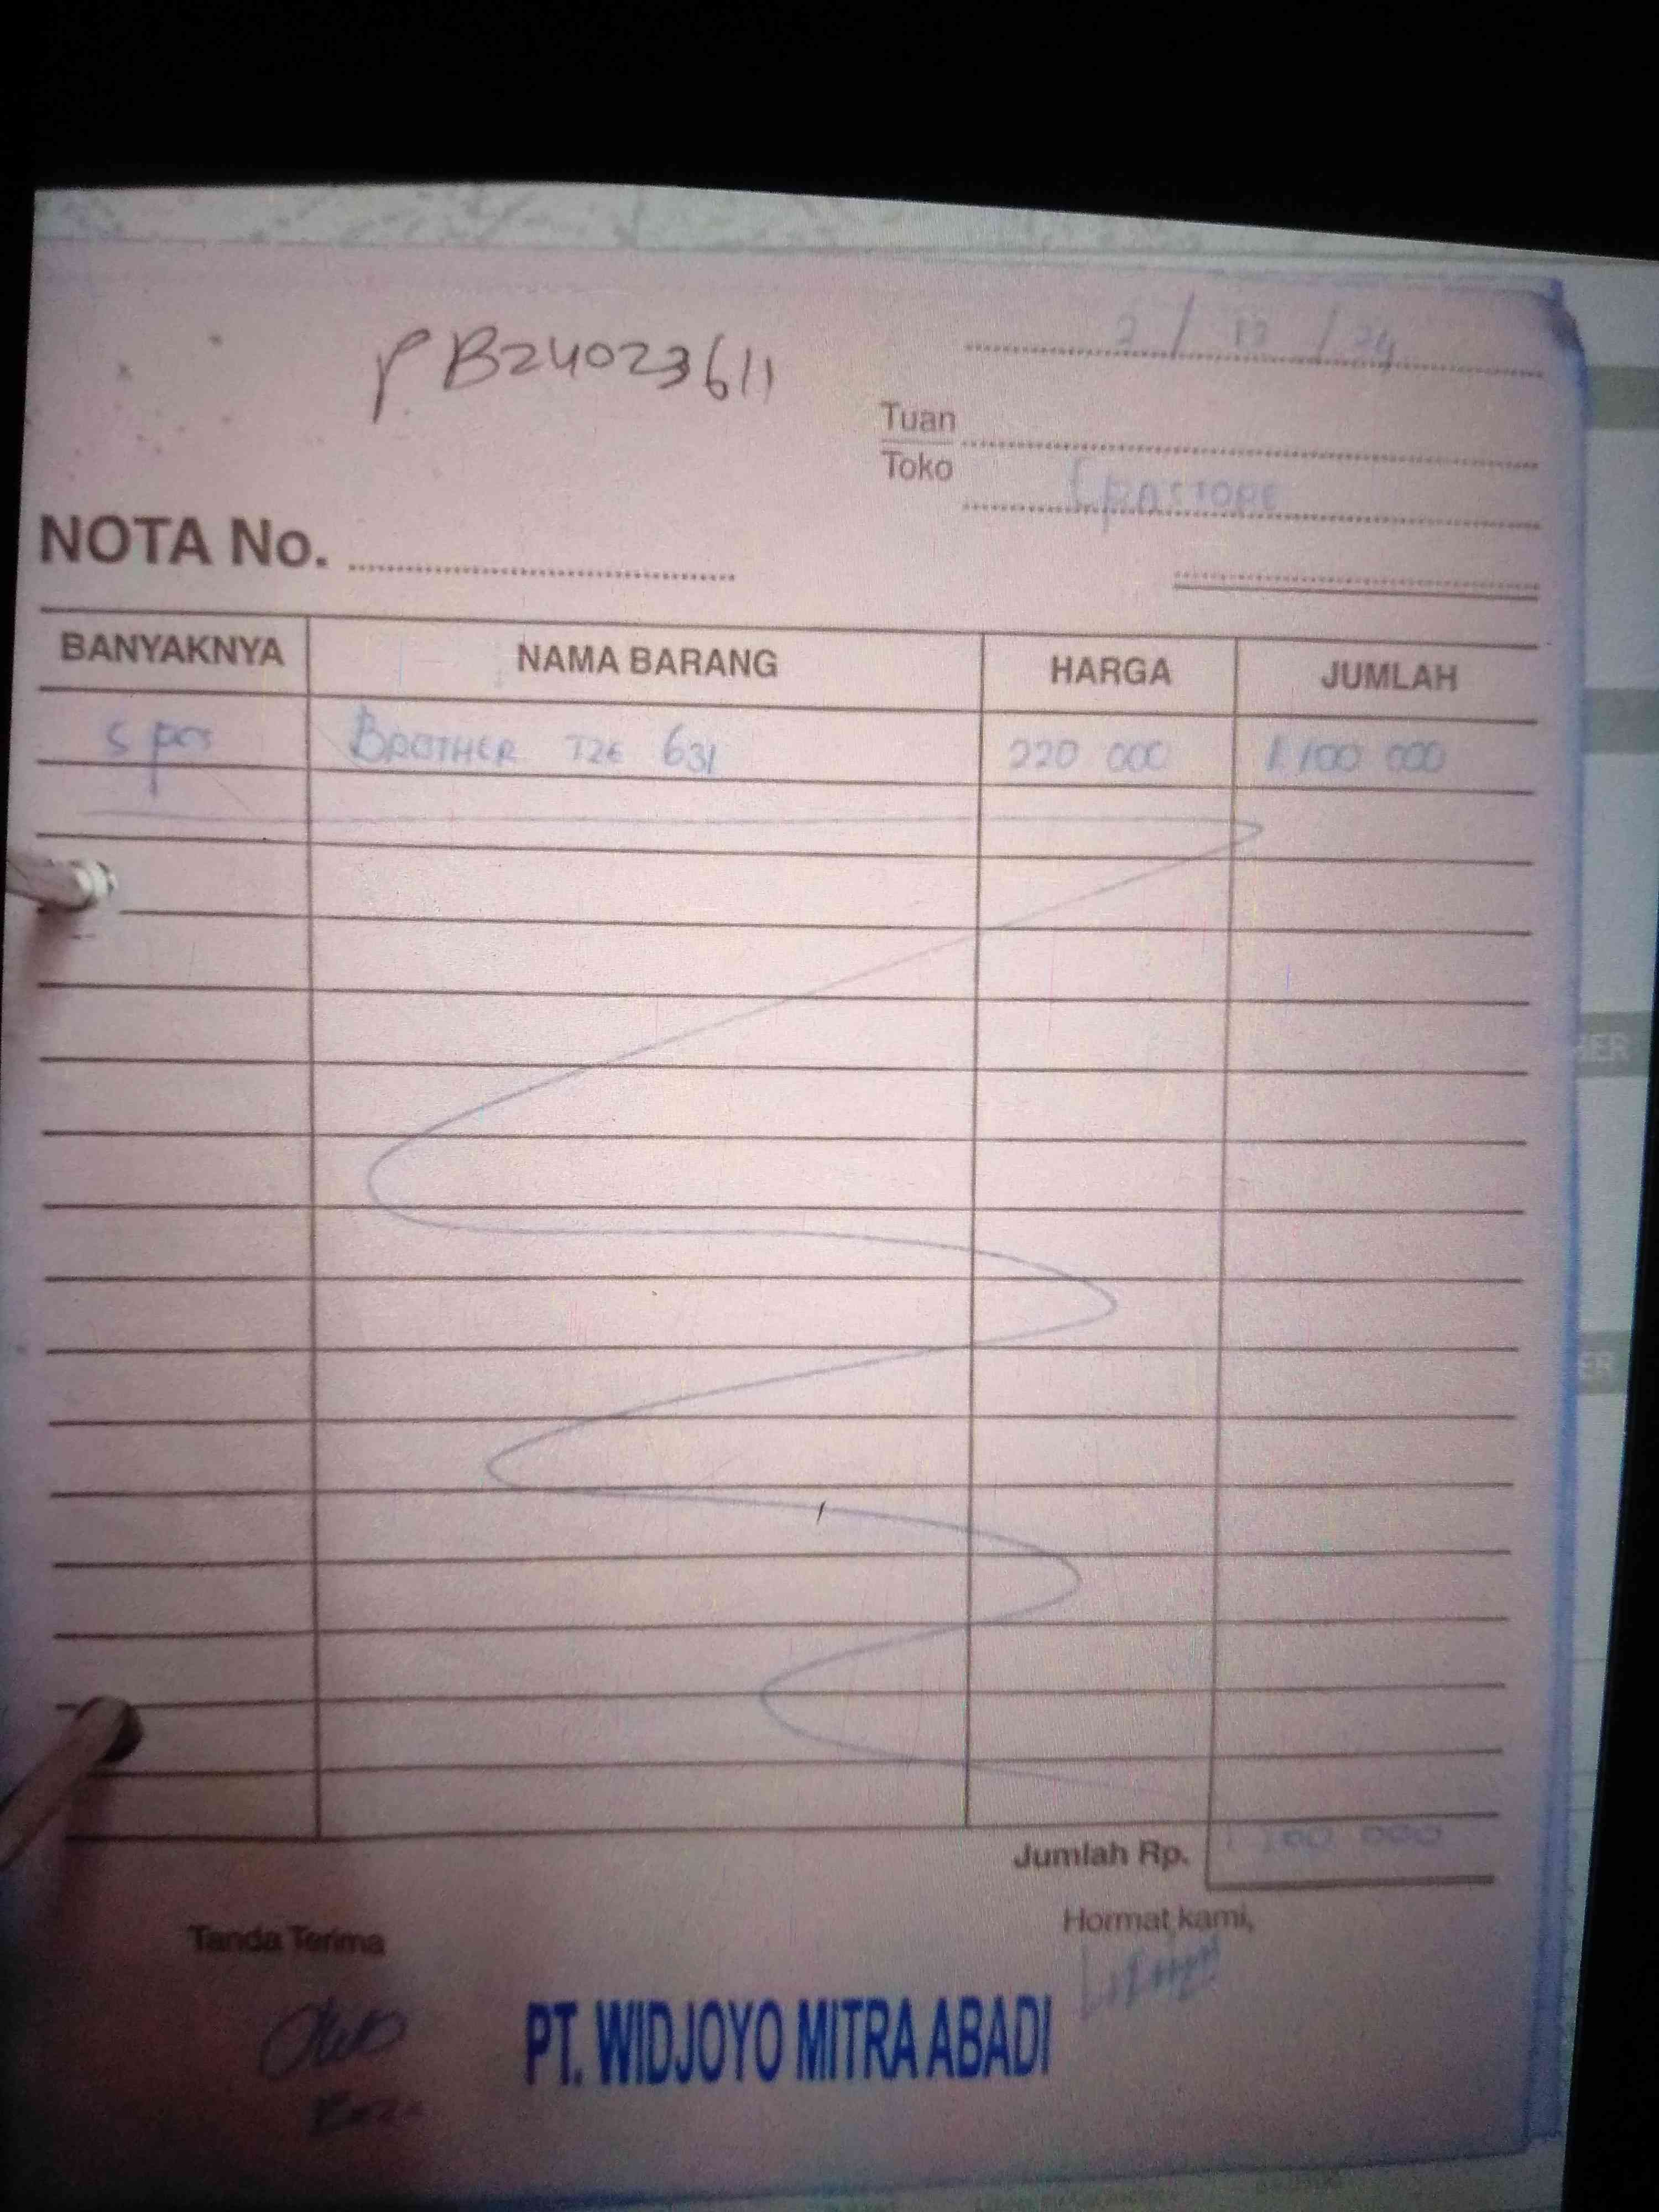 PB24023611
2 / 12 / 24
Tuan
Toko
NOTA No.
BANYAKNYA NAMA BARANG HARGA JUMLAH
5 pcs BROTHER TZE 631 220 000 1.100 000
Jumlah Rp. 1.100.000
Tanda Terima Hormat kami,
PT. WIDJOYO MITRA ABADI